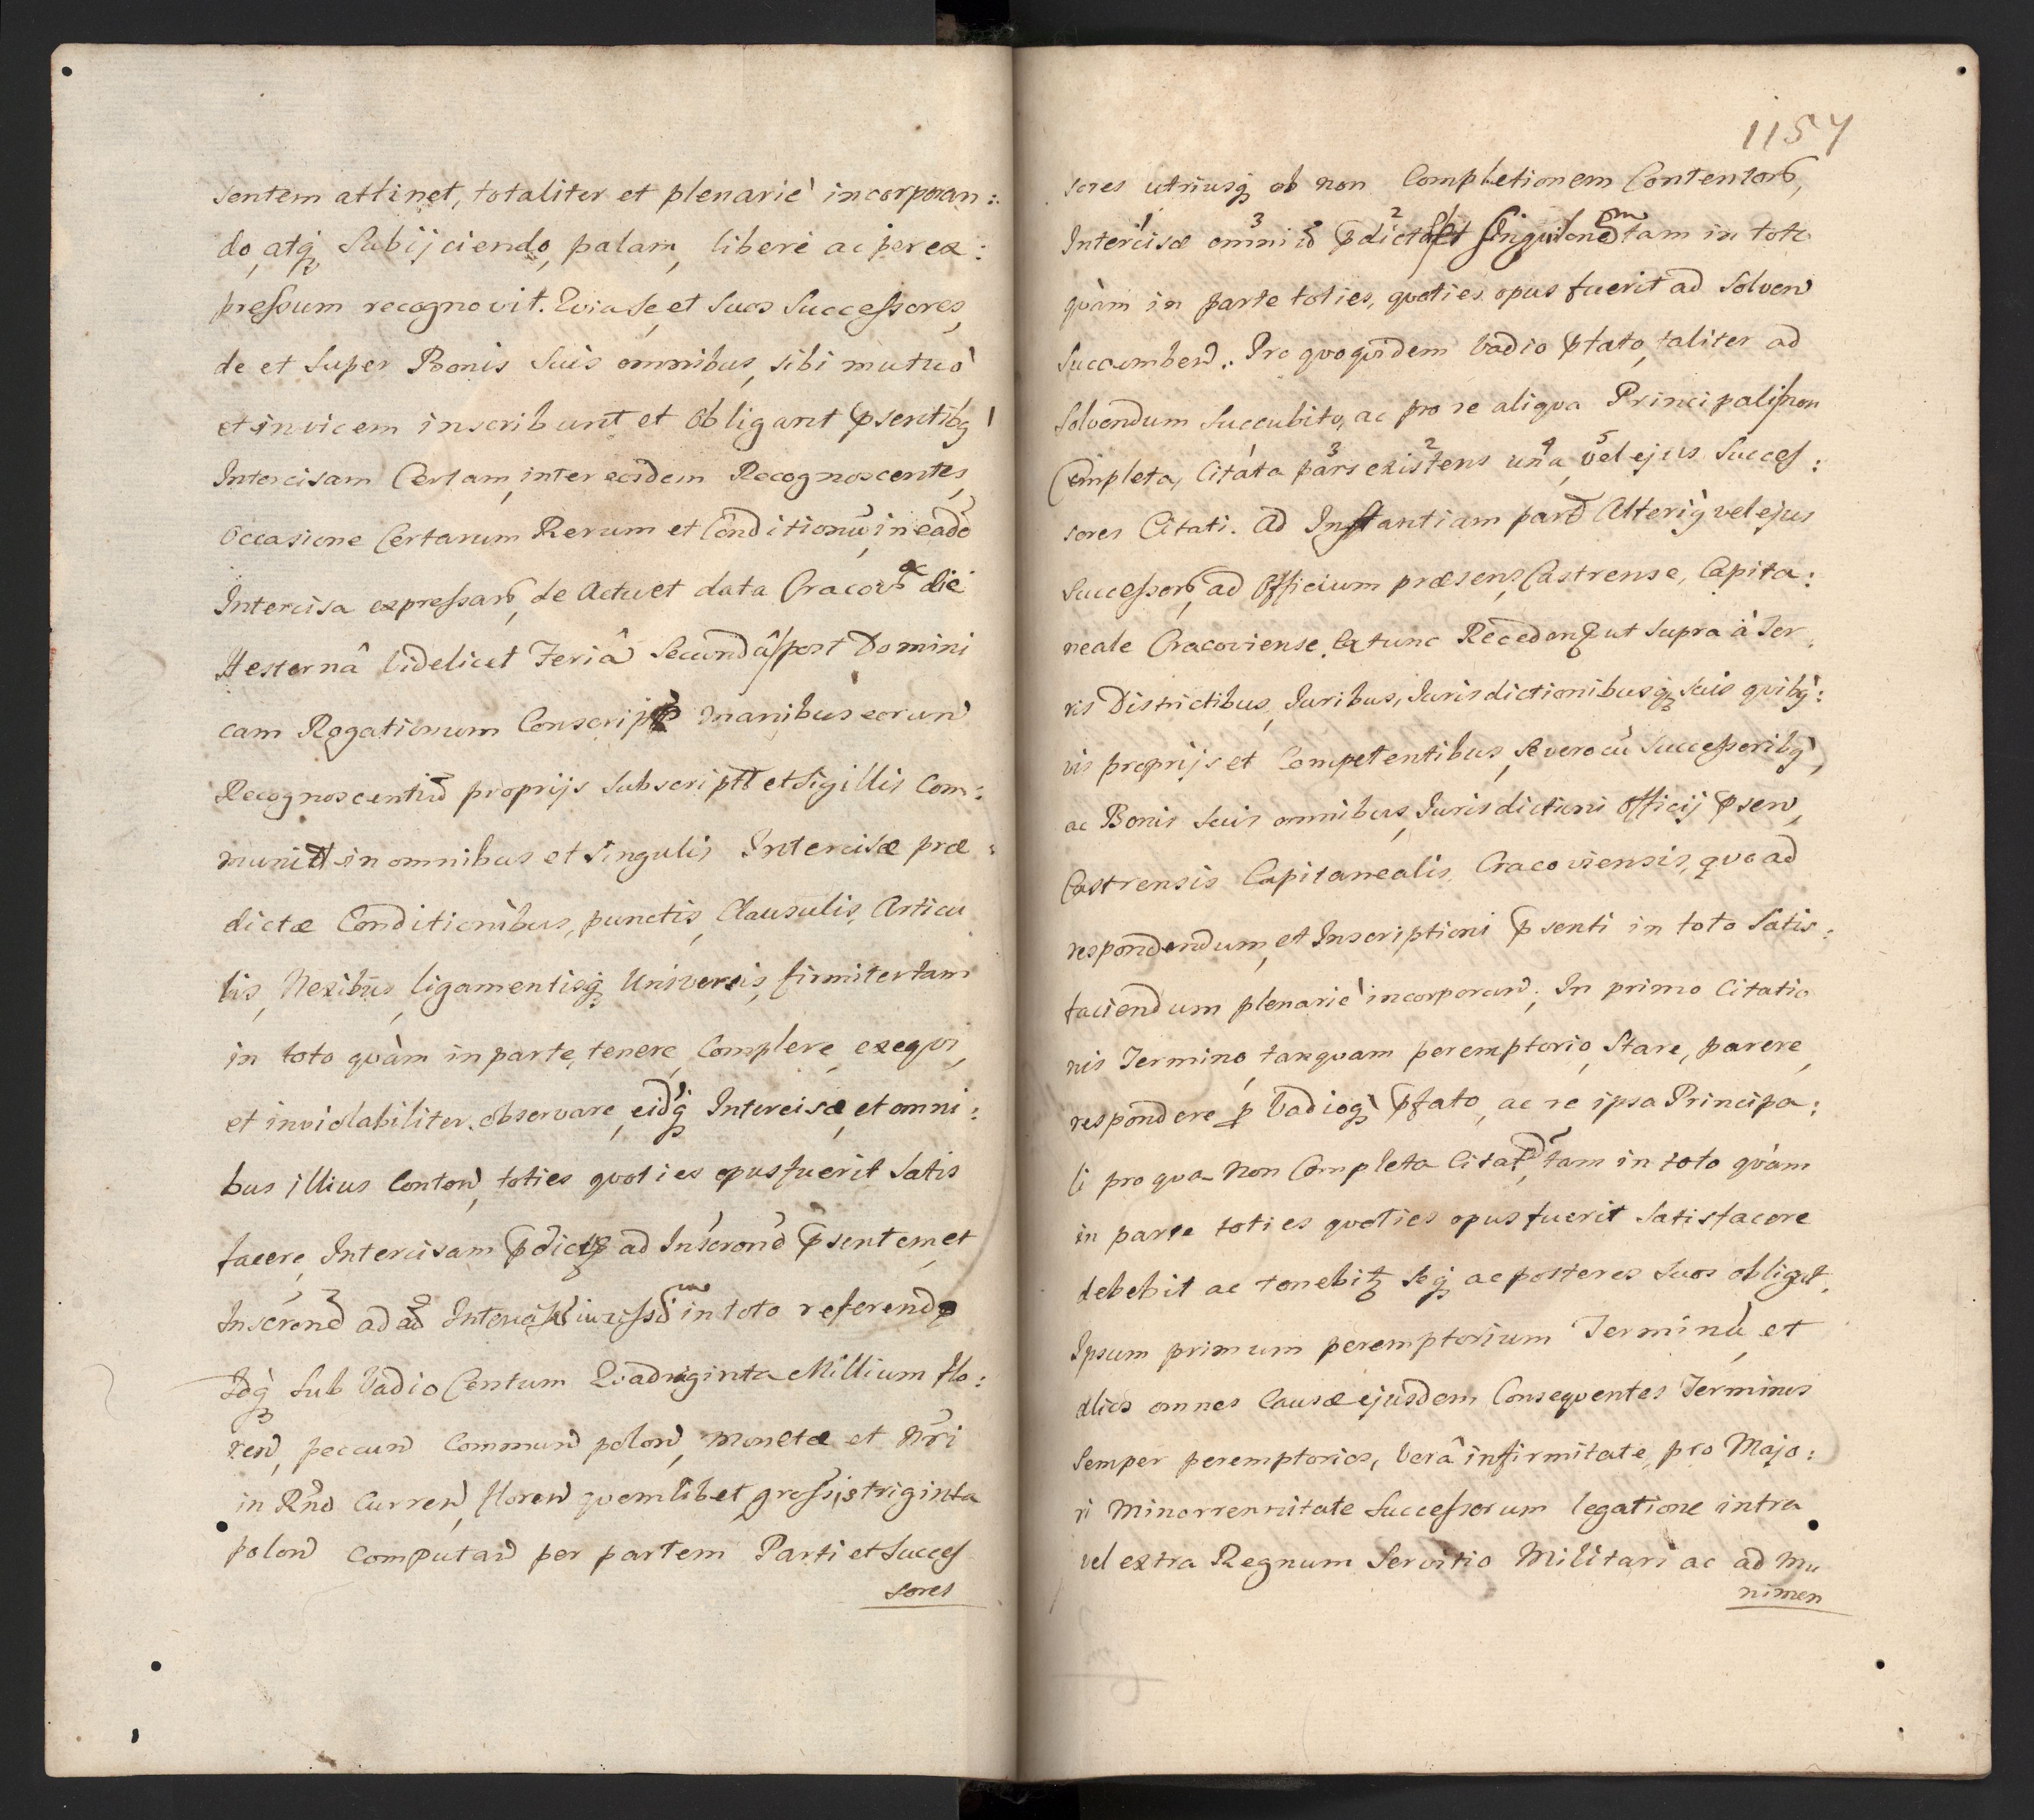 sentem attinet, totaliter et plenariè incorporan:
do, atq; Subijciendo, palam, liberè ac per ex:
pressum recognovit. Qvia Se, et Suos Successores,
de et Super Bonis Suis omnibus, sibi mutuò
et invicem inscribunt et Obligant pñsentibq
Intercisam Certam, inter eosdem Recognoscentes,
Occasione Certarum Rerum et Conditionũ, in eadẽ
Intercisa expressarũ, de Actu et data Cracoviæ die
Hesternâ Videlicet Feriâ Secundâ post Domini
cam Rogationum Conscript manibus eorund
Recognoscentiũ proprijs Subscriptt et Sigillis Com:
munitt in omnibus et Singulis Intercisæ præ:
dictæ Conditionibus, punctis, Clausulis, Articu
lis, Nexibus, ligamentisq; Universis, firmiter tam
in toto qvàm in parte, tenere, Complere, exeqvi,
et inviolabiliter observare, eidq; Intercisæ, et omni:
bus illius Conten, toties qvoties opus fuerit Satis
facere, Intercisam pdict ad Inscrond pñsentem, et
Inscrond ad ad in toto referend
Idq; Sub Vadio Centum Qvadraginta Millium flo:
ren, pecun Commun polon, Monetæ et Nri
in Rño Curren, floren qvemlibet, grossis triginta
polon Computan per partem Parti et Succes
sores
1157
sores utriusq; ob non Completionem Contentorũ,
Intercisæ omniũ pdict et Singulor tam in toto
qvàm in parte toties, qvoties opus fuerit ad Solven
Succumben. Pro qvo qvidem Vadio ptato, taliter ad
Solvendum Succubito, ac pro re aliqva Principali non
Completa, Citata pars existens una, vel ejus Succes:
sores Citati. Ad Instantiam part Alteriq vel ejus
Successorũ, ad Officium præsens, Castrense, Capita:
neale Cracoviense. Ex tunc Recedent ut Supra à Ter
ris Districtibus, Juribus, Jurisdictionibusq; Suis qvibq:
vis proprijs et Competentibus, Se vero cũ Successoribq,
ac Bonis Suis omnibus, Jurisdictioni Officij psen,
Castrensis Capitanealis Cracoviensis, qvo ad
respondendum, et Inscriptioni psenti in toto Satis:
faciendum plenariè incorporan; In primo Citatio
nis Termino, tanqvam peremptorio, Stare, parere,
respondere p Vadioq; pfato, ac re ipsa Principa:
li pro qva non Completa Citat, tam in toto qvàm
in parte toties qvoties opus fuerit Satisfacere
debebit ac tenebit Seq; ac posteros Suos obligat,
Ipsum primum peremptorium Terminũ, et
alios omnes Causæ ejusdem Conseqventes Terminos
Semper peremptorios, Verâ infirmitate, pro Majo:
ri Minorrennitate Successorum legatione intra
vel extra Regnum Servitio Militari ac ad Mu
nimen